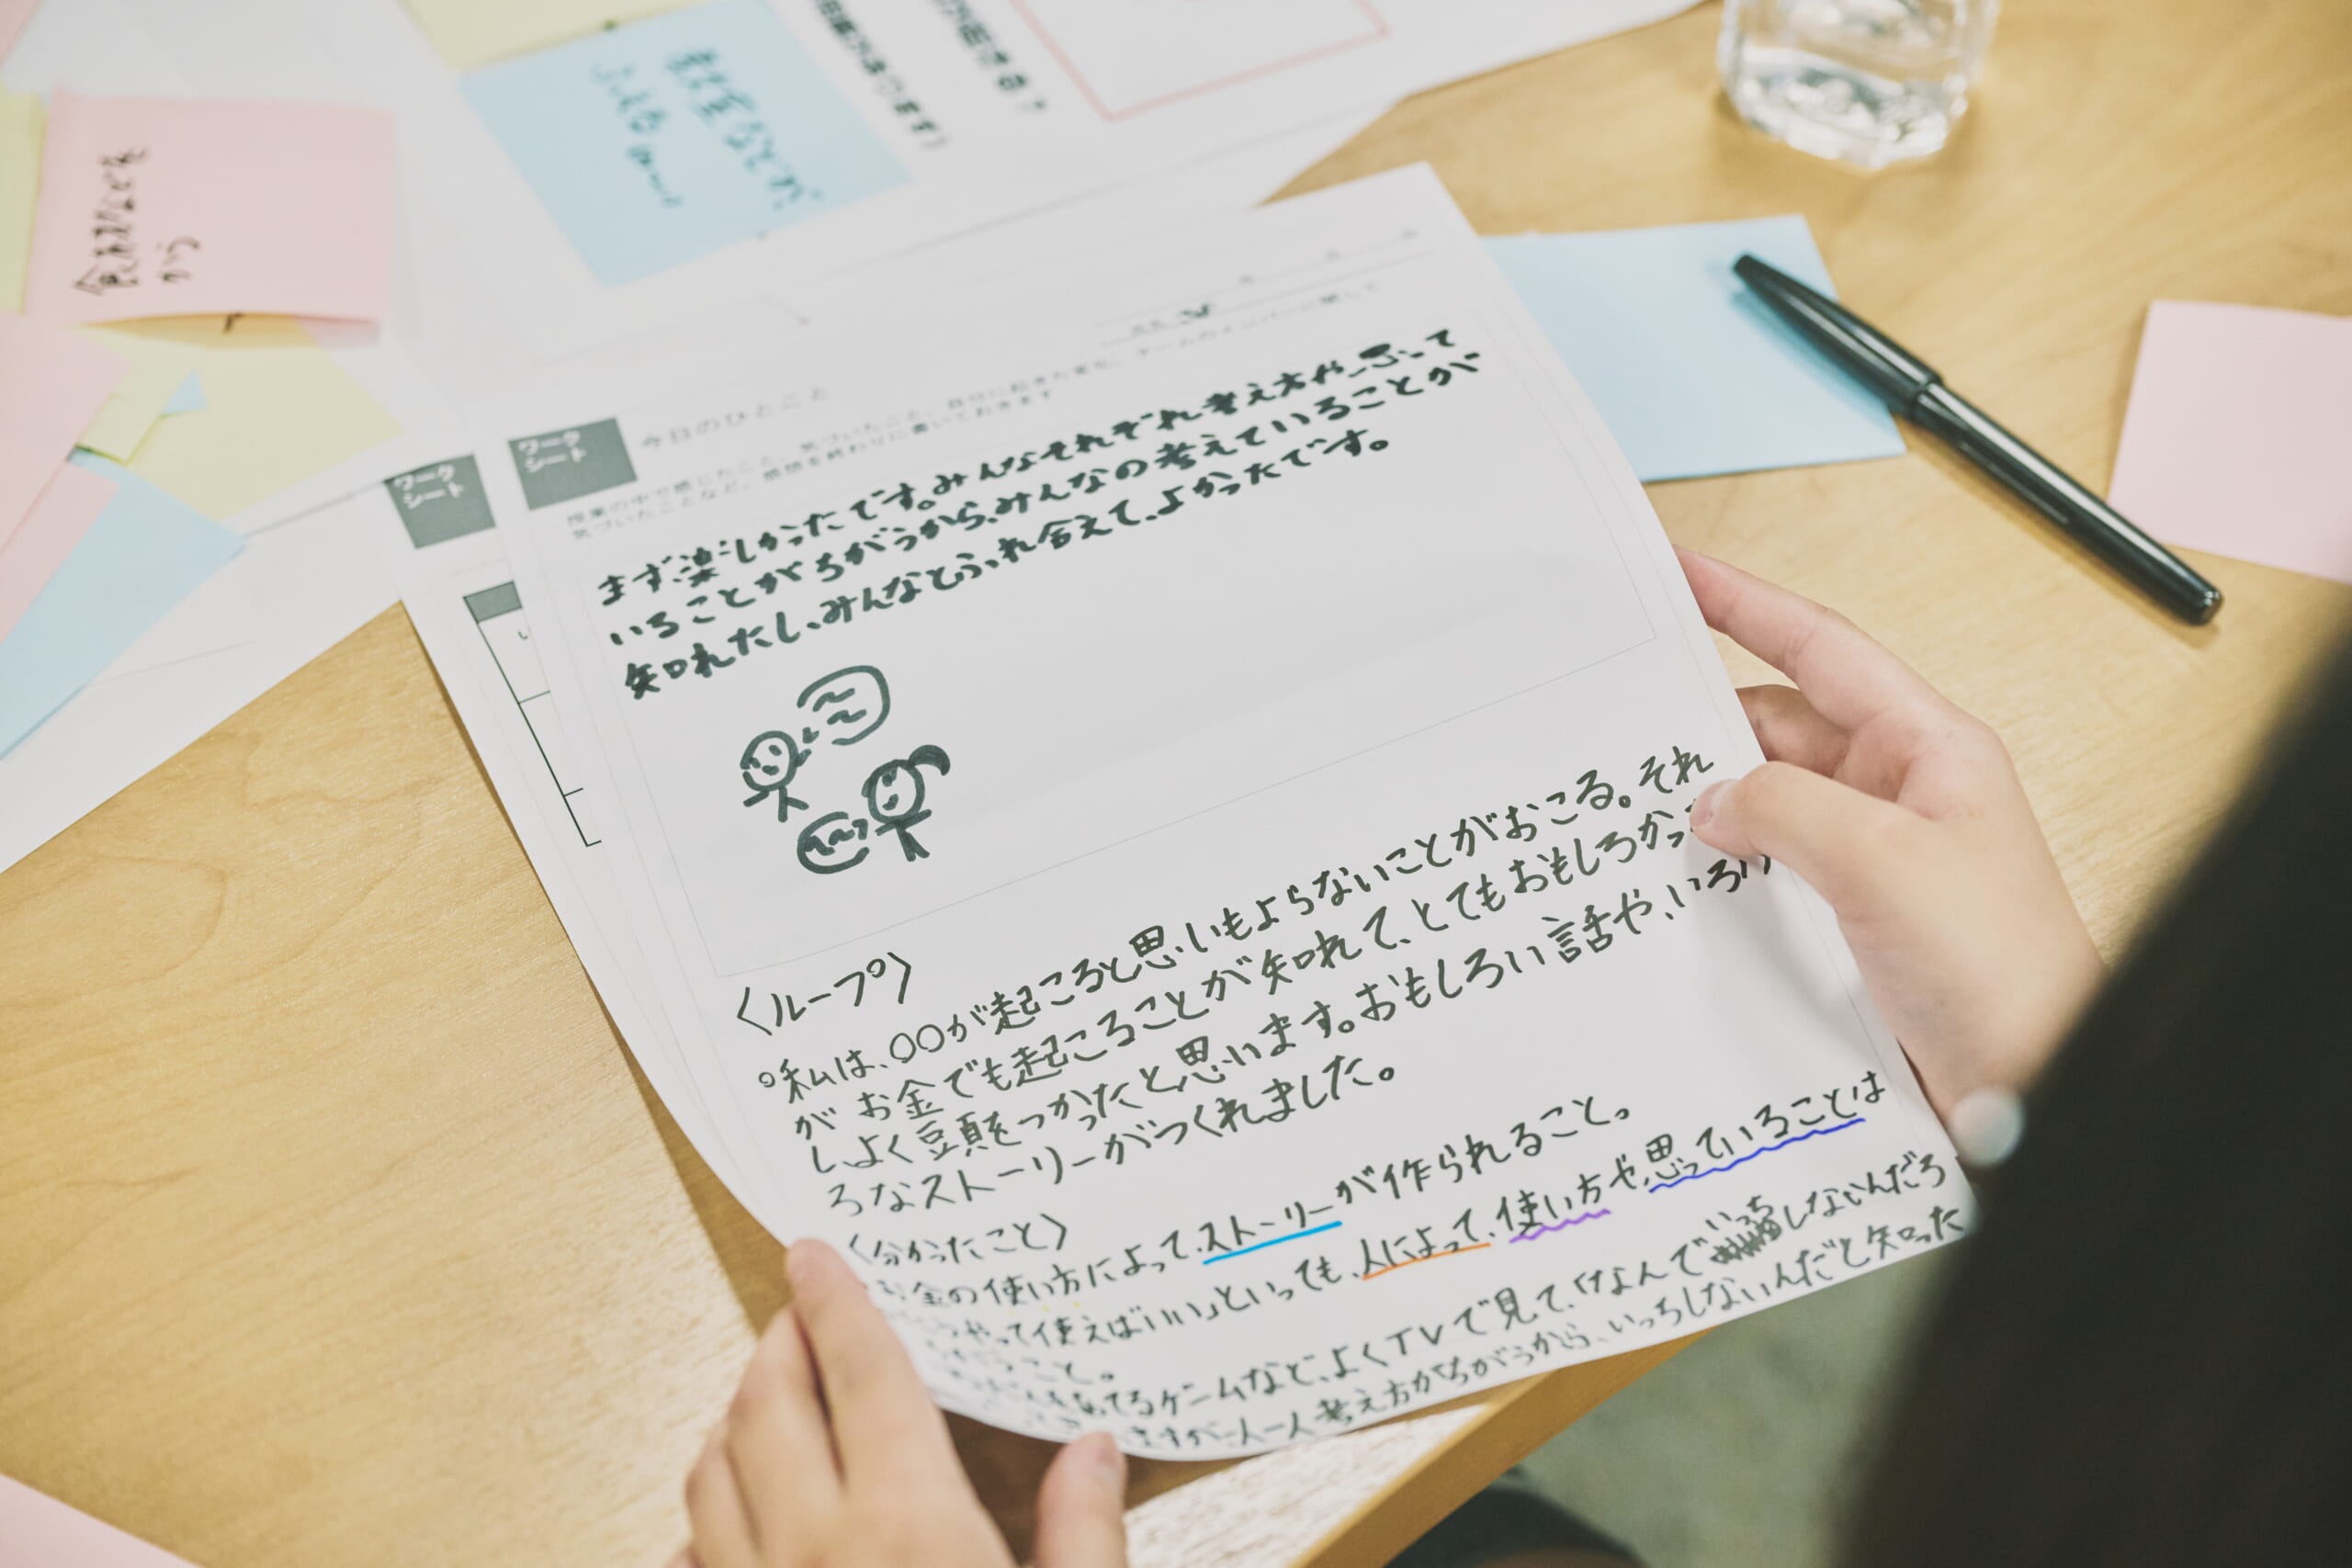 食材などを
から
ワーク
シート
ワーク
シート
今日のひとこと
授業の中で感じたこと、気づいたこと、自分に起きた変化、チームのメンバーに関して
気づいたことなど、感想を終わりに書いておきます
まず、楽しかったです。みんなそれぞれ考え方や、思って
いることがちがうから、みんなの考えていることが
知れたし、みんなとふれ合えて、よかったです。
〈ループ〉
○私は、○○が起こると思いもよらないことがおこる。それ
がお金でも起こることが知れて、とてもおもしろかった
し、よく頭をつかったと思います。おもしろい話や、いろい
ろなストーリーがつくれました。
〈分かったこと〉
お金の使い方によって、ストーリーが作られること。
うやって使えばいい」といっても、人によって、使い方や、思っていることは
うこと。
てるゲームなど、よくTVで見て、「なんでいっちしないんだろ
ますが、一人一人考え方がちがうから、いっちしないんだと知った